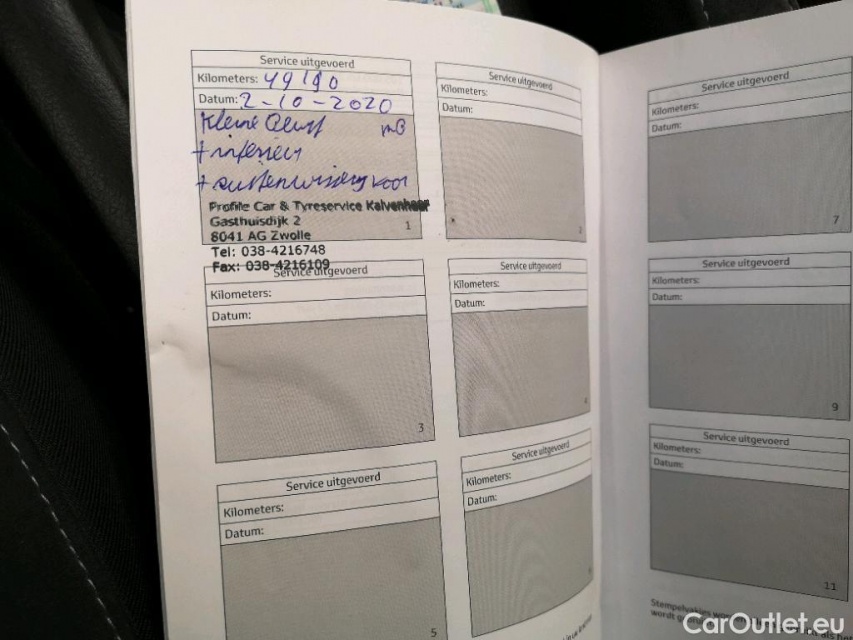 Service uitgevoerd
Kilometers: 49190
Datum: 2-10-2020
Kleine Beurt
+
+ voor
Profile Car & Tyreservice
Gasthuisdijk 2
8041 AG Zwolle
Tel: 038-4216748
Fax: 038-4216109
1
Service uitgevoerd
Kilometers:
Datum:
2
Service uitgevoerd
Kilometers:
Datum:
3
Service uitgevoerd
Kilometers:
Datum:
4
Service uitgevoerd
Kilometers:
Datum:
5
Service uitgevoerd
Kilometers:
Datum:
Service uitgevoerd
Kilometers:
Datum:
7
Service uitgevoerd
Kilometers:
Datum:
9
Service uitgevoerd
Kilometers:
Datum:
11
Stempelvakjes
wordt
CarOutlet.eu